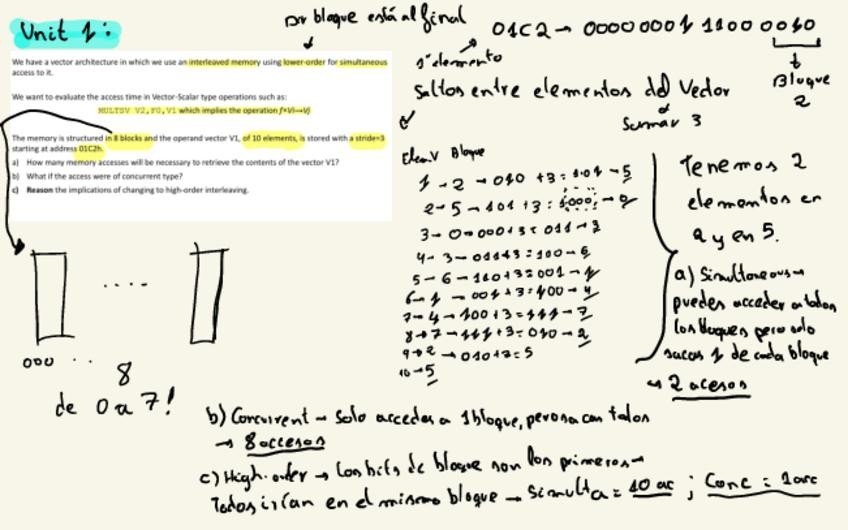 Unit 1:
Dir bloque está al final
We have a vector architecture in which we use an interleaved memory using lower-order for simultaneous
access to it.
We want to evaluate the access time in Vector-Scalar type operations such as:
MULTSV V2,F0,V1 which implies the operation f×Vi→Vj
The memory is structured in 8 blocks and the operand vector V1, of 10 elements, is stored with a stride=3
starting at address 01C2h.
a) How many memory accesses will be necessary to retrieve the contents of the vector V1?
b) What if the access were of concurrent type?
c) Reason the implications of changing to high-order interleaving.
01C2 → 0000 0001 1100 0010
1º elemento
Bloque
2
Saltos entre elementos del Vector
Sumar 3
Elem.V Bloque
1 - 2 → 010 + 3 = 101 - 5
2 - 5 - 101 + 3 = 1000 → 0
3 - 0 - 000 + 3 = 011 - 3
4 - 3 - 011 + 3 = 100 - 6
5 - 6 - 110 + 3 = 001 - 1
6 - 1 → 001 + 3 = 100 - 4
7 - 4 - 100 + 3 = 111 - 7
8 → 7 → 111 + 3 = 010 - 2
9 → 2 → 010 + 3 = 5
10 → 5
Tenemos 2
elementos en
2 y en 5.
a) Simultaneous →
puedes acceder a todos
los bloques pero solo
sacas 1 de cada bloque
↳ 2 acesos
000 ..
8
de 0 a 7!
b) Concurrent → Solo accedes a 1 bloque, pero sacan todos
→ 8 accesos
c) High-order → Los bits de bloque son los primeros →
Todos irían en el mismo bloque → Simulta = 10 ac ; Conc = 1 acc